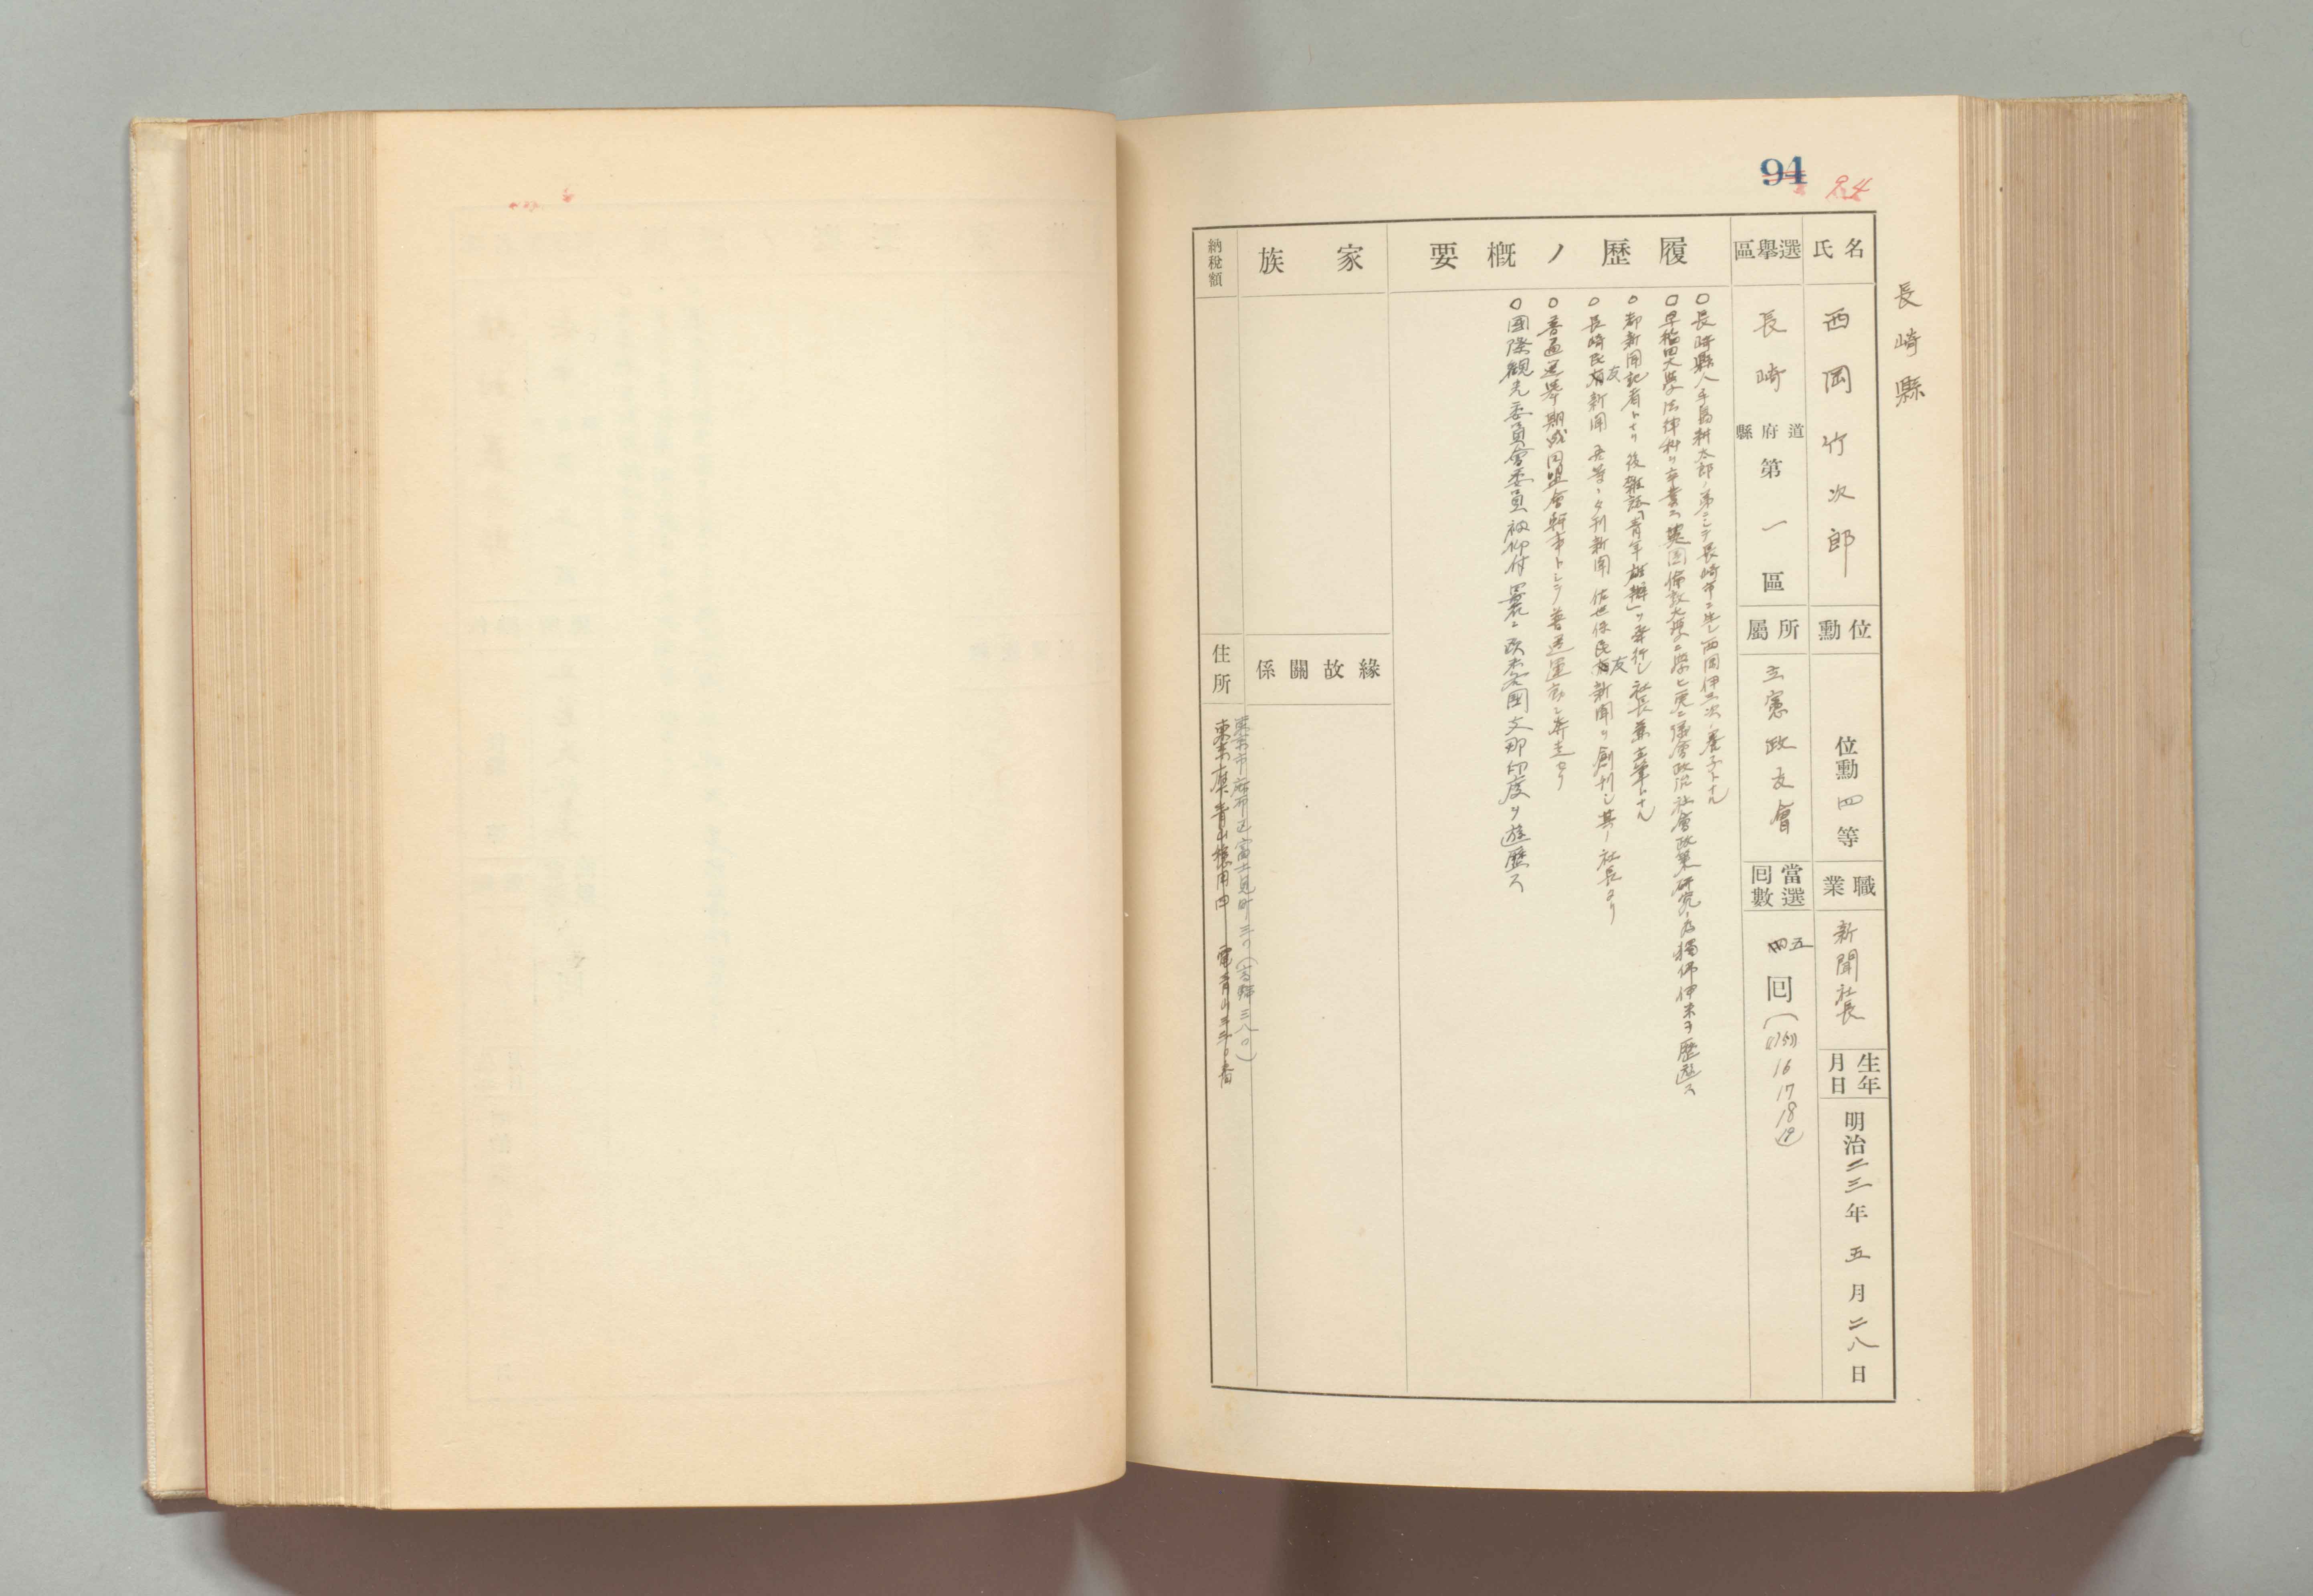 94
94
長崎縣
氏名
西岡竹次郎
位勳
位勳四等
職業
新聞社長
生年月日
明治二三年五月二八日
選擧區
長崎道府縣第一區
所屬
立憲政友會
當選回數
四五回
16
17
18
履歷ノ概要
○長崎縣人手島耕太郎ノ弟ニシテ長崎市ニ生レ西岡伊三次ノ養子トナル
○早稲田大學法律科ヲ卒業ス英國倫敦大學ニ學ヒ更ニ議會政治社會政策研究ノ為獨佛伊米ヲ歷遊ス
○都新聞記者トナリ後雜誌「青年雄辯」ヲ發行シ社長兼主筆トナル
○長崎民友新聞 夕刊新聞 佐世保民友新聞ヲ創刊シ其ノ社長タリ
○普通選擧期成同盟會幹事トシテ普選運動ニ奔走セリ
○國際観光委員會委員被仰付曩ニ欧米各國支那印度ヲ遊歷ス
家族
緣故關係
納稅額
住所
東京市麻布區富士見町三〇(高輪三八〇)
東京市赤坂青山穏田四 電青山三三〇番